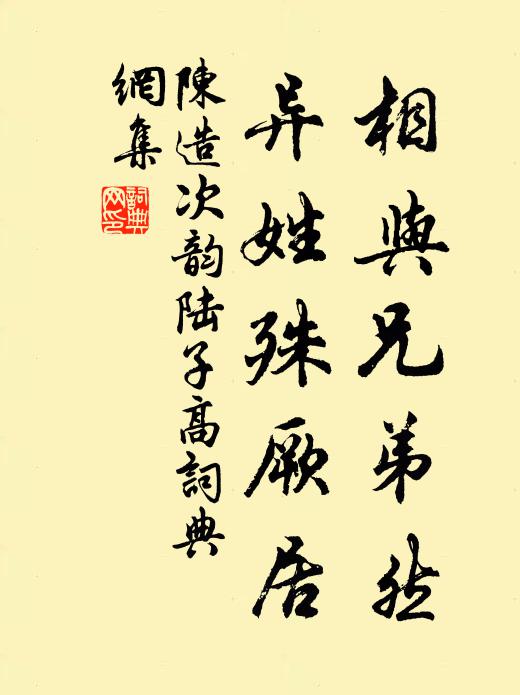 相與兄弟然
异姓殊厥居
陳造次韵陆子高詞典
網集
詞典
网印